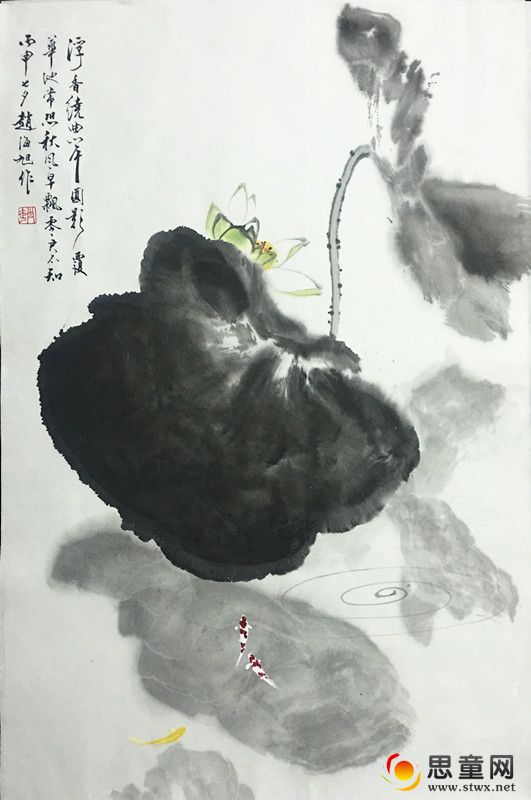 浮香繞曲岸圓影覆
華池常恐秋风早飄零君不知
丙申七夕趙海旭作
思童网
www.stwx.net